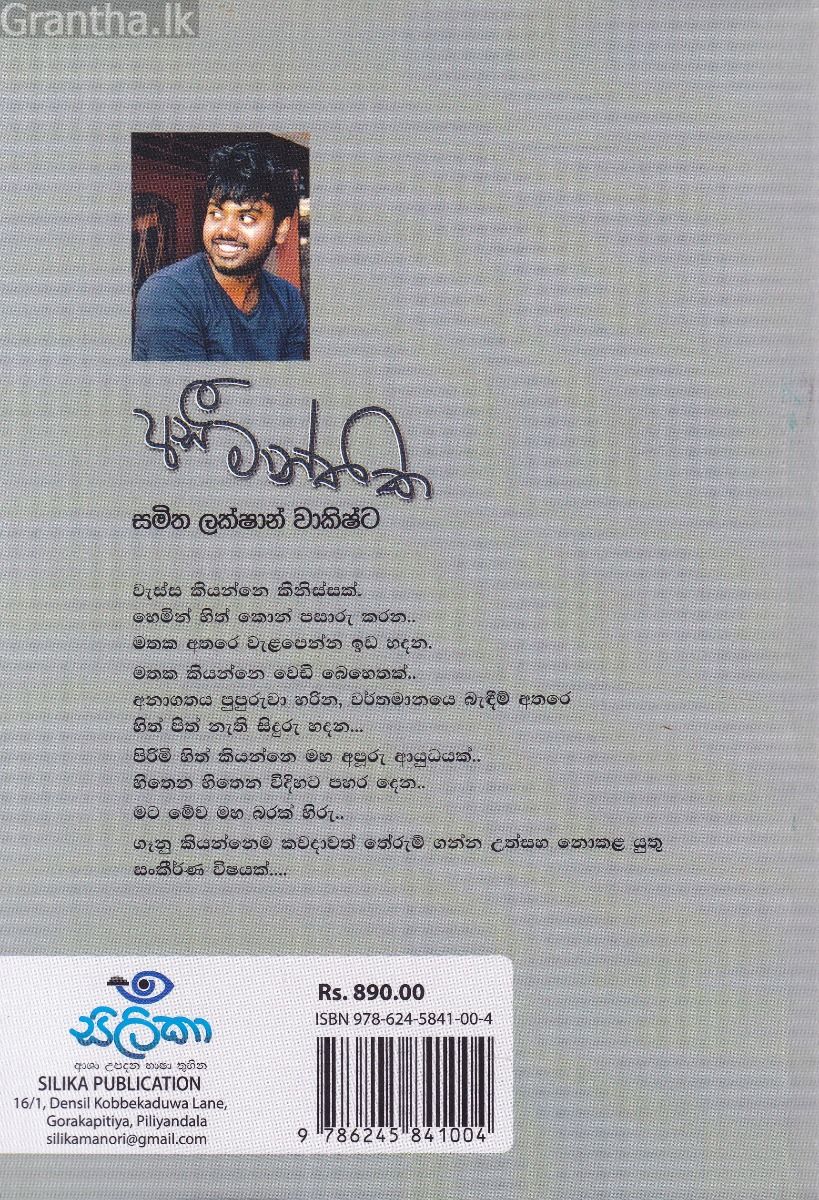 Grantha.lk
අසීමාන්තික
සමිත ලක්ෂාන් වාකිෂ්ට
වැස්ස කියන්නෙ කිනිස්සක්.
හෙමින් හිත් කොන් පසාරු කරන..
මතක අතරෙ වැළපෙන්න ඉඩ හදන.
මතක කියන්නෙ වෙඩි බෙහෙතක්..
අනාගතය පුපුරුවා හරින, වර්තමානයෙ බැඳීම් අතරෙ
හිත් පිත් නැති සිදුරු හදන...
පිරිමි හිත් කියන්නෙ මහ අපූරු ආයුධයක්..
හිතෙන හිතෙන විදිහට පහර දෙන..
මට මේව මහ බරක් හිරු..
ගෑනු කියන්නෙම කවදාවත් තේරුම් ගන්න උත්සහ නොකළ යුතු
සංකීර්ණ විෂයක්....
සිලිකා
ආශා උපදන භාෂා තුහින
SILIKA PUBLICATION
16/1, Densil Kobbekaduwa Lane,
Gorakapitiya, Piliyandala
silikamanori@gmail.com
Rs. 890.00
ISBN 978-624-5841-00-4
9 786245 841004